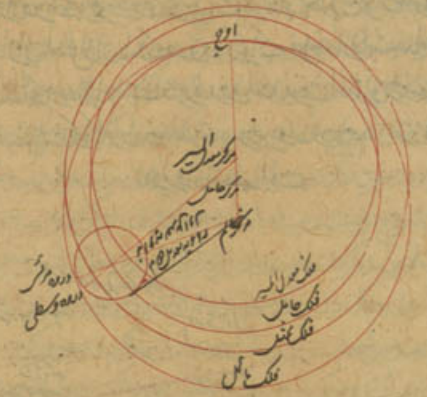 اوج
مرکز معدل المسیر
مرکز حامل
مرکز عالم
ذروه مرئی
ذروه وسطی
فلک معدل المسیر
فلک حامل
فلک ممثل
فلک مائل